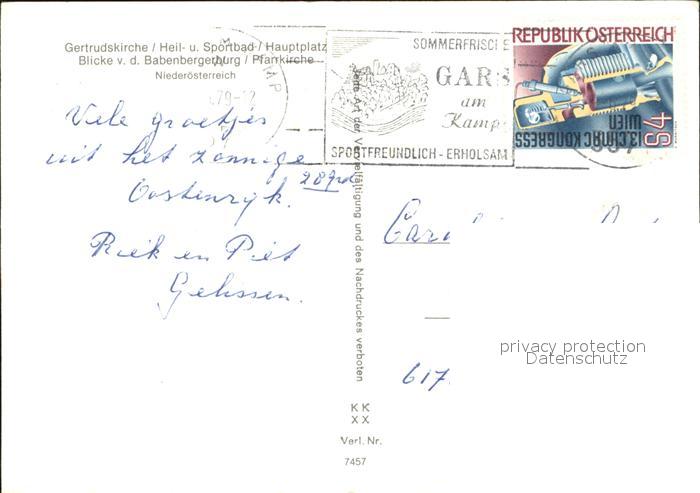 Gertrudskirche / Heil- u. Sportbad / Hauptplatz
Blicke v. d. Babenbergerburg / Pfarrkirche
Niederösterreich
Viele groetjes
uit het zonnige
Oostenryk. 28 grd
Riek en Piet
Gelissen.
79-12
SOMMERFRISCHE
GARS
am
Kamp
SPORTFREUNDLICH - ERHOLSAM
REPUBLIK ÖSTERREICH
13.CIMAC KONGRESS
WIEN
S4
Jede Art der Vervielfältigung und des Nachdruckes verboten
617
privacy protection
Datenschutz
KK
XX
Verl. Nr.
7457